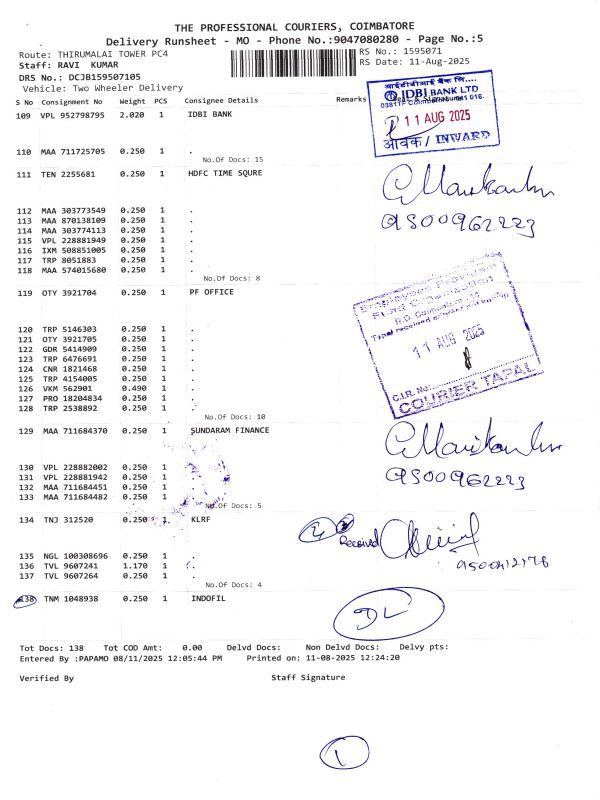 THE PROFESSIONAL COURIERS, COIMBATORE
Delivery Runsheet - MO - Phone No.:9047080280 - Page No.:5
Route: THIRUMALAI TOWER PC4
RS No.: 1595071
Staff: RAVI KUMAR
RS Date: 11-Aug-2025
DRS No.: DCJB159507105
Vehicle: Two Wheeler Delivery
S No Consignment No Weight PCS Consignee Details Remarks
109 VPL 952798795 2.020 1 IDBI BANK
आईडीबीआई बैंक लि....
IDBI BANK LTD
11 AUG 2025
आवक / INWARD
110 MAA 711725705 0.250 1 .
No.Of Docs: 15
111 TEN 2255681 0.250 1 HDFC TIME SQURE
9500962223
112 MAA 303773549 0.250 1 .
113 MAA 870138109 0.250 1 .
114 MAA 303774113 0.250 1 .
115 VPL 228881949 0.250 1 .
116 IXM 508851005 0.250 1 .
117 TRP 8051883 0.250 1 .
118 MAA 574015680 0.250 1 .
No.Of Docs: 8
119 OTY 3921704 0.250 1 PF OFFICE
Employees Provident
Fund Organisation
11 AUG 2025
C.I.R. No:
COURIER TAPAL
120 TRP 5146303 0.250 1 .
121 OTY 3921705 0.250 1 .
122 GDR 5414909 0.250 1 .
123 TRP 6476691 0.250 1 .
124 CNR 1821468 0.250 1 .
125 TRP 4154005 0.250 1 .
126 VKM 562901 0.490 1 .
127 PRO 18204834 0.250 1 .
128 TRP 2538892 0.250 1 .
No.Of Docs: 10
129 MAA 711684370 0.250 1 SUNDARAM FINANCE
9500962223
130 VPL 228882002 0.250 1 .
131 VPL 228881942 0.250 1 .
132 MAA 711684451 0.250 1 .
133 MAA 711684482 0.250 1 .
No.Of Docs: 5
134 TNJ 312520 0.250 1 KLRF
Received
135 NGL 100308696 0.250 1 .
136 TVL 9607241 1.170 1 .
137 TVL 9607264 0.250 1 .
No.Of Docs: 4
138 TNM 1048938 0.250 1 INDOFIL
DL
Tot Docs: 138 Tot COD Amt: 0.00 Delvd Docs: Non Delvd Docs: Delvy pts:
Entered By :PAPAMO 08/11/2025 12:05:44 PM Printed on: 11-08-2025 12:24:20
Verified By Staff Signature
1